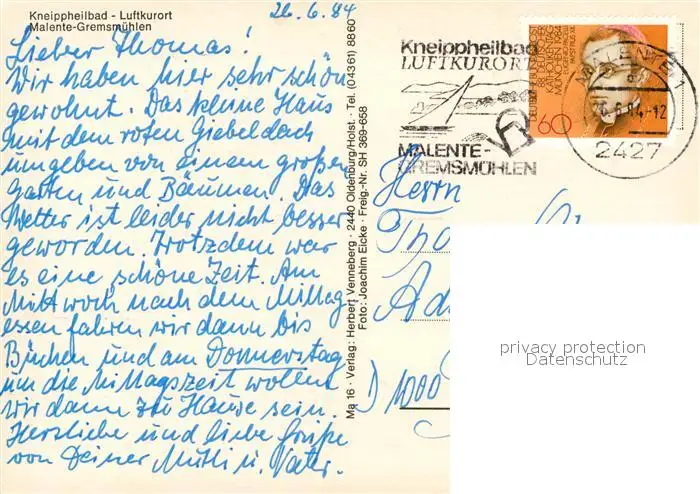 Kneippheilbad - Luftkurort
Malente-Gremsmühlen
26.6.84
Lieber Thomas!
Wir haben hier sehr schön
gewohnt. Das kleine Haus
mit dem roten Giebeldach
umgeben von einem großen
Garten und Bäumen. Das
Wetter ist leider nicht besser
geworden. Trotzdem war
es eine schöne Zeit. Am
Mittwoch nach dem Mittag
essen fahren wir dann bis
Büchen und am Donnerstag
um die Mittagszeit wollen
wir dann zu Hause sein.
Herzliche und liebe Grüße
von Deiner Mutti u. Vater.
Ma 16 · Verlag: Herbert Venneberg · 2440 Oldenburg/Holst. · Tel. (04361) 8860
Foto: Joachim Eicke · Freig.-Nr. SH 369-658
Kneippheilbad
LUFTKURORT
MALENTE-
GREMSMÜHLEN
60
MALENTE 1
2427
Herrn
Tho
Ad
D 1000
privacy protection
Datenschutz